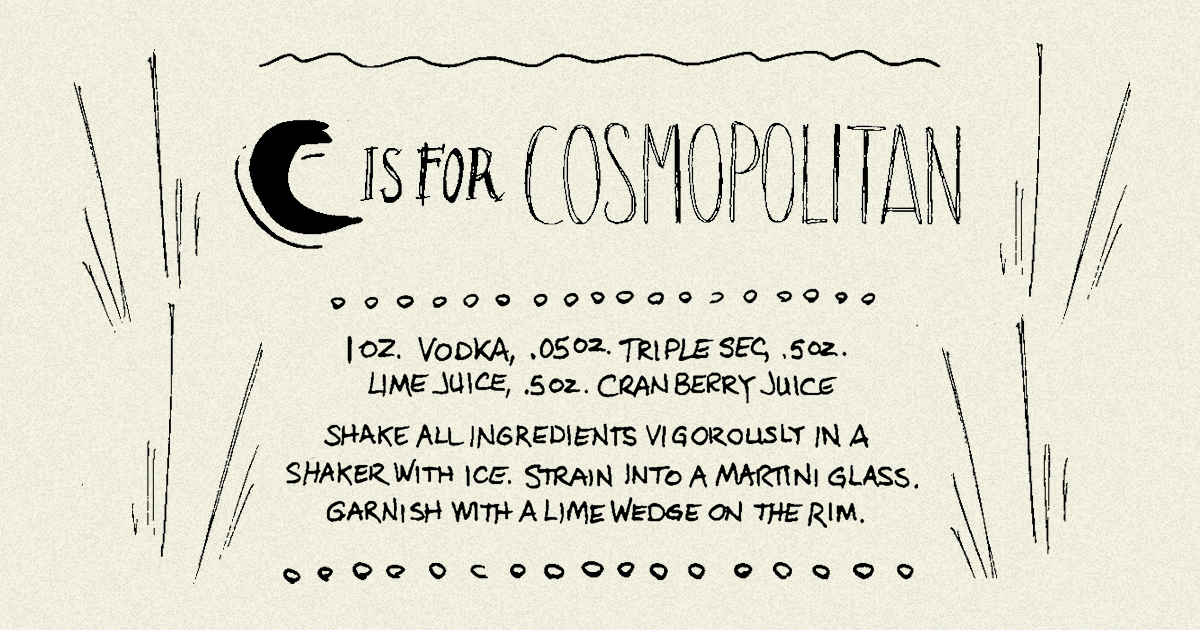 C IS FOR COSMOPOLITAN
1 OZ. VODKA, .05 OZ. TRIPLE SEC, .5 OZ.
LIME JUICE, .5 OZ. CRANBERRY JUICE
SHAKE ALL INGREDIENTS VIGOROUSLY IN A
SHAKER WITH ICE. STRAIN INTO A MARTINI GLASS.
GARNISH WITH A LIME WEDGE ON THE RIM.